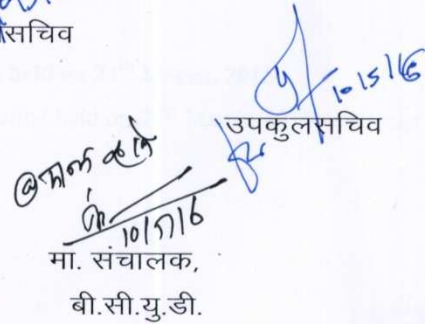 सचिव
10/5/16
उपकुलसचिव
10/5/16
मा. संचालक,
बी.सी.यु.डी.